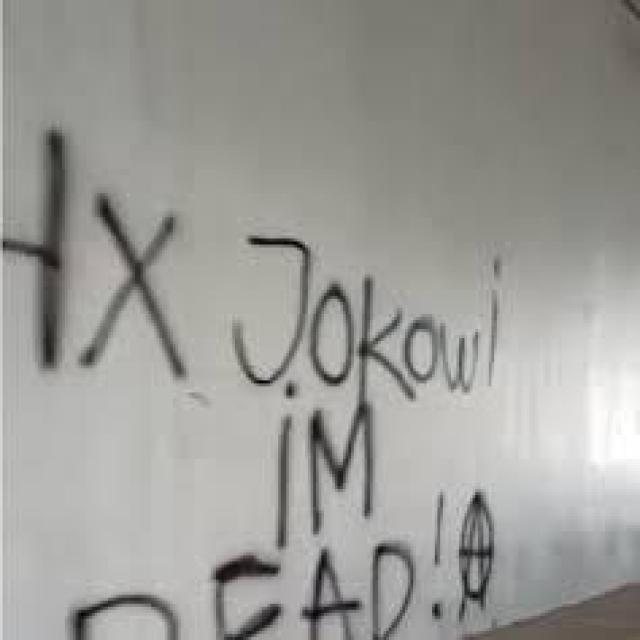 HX Jokowi
iM
DEAD!